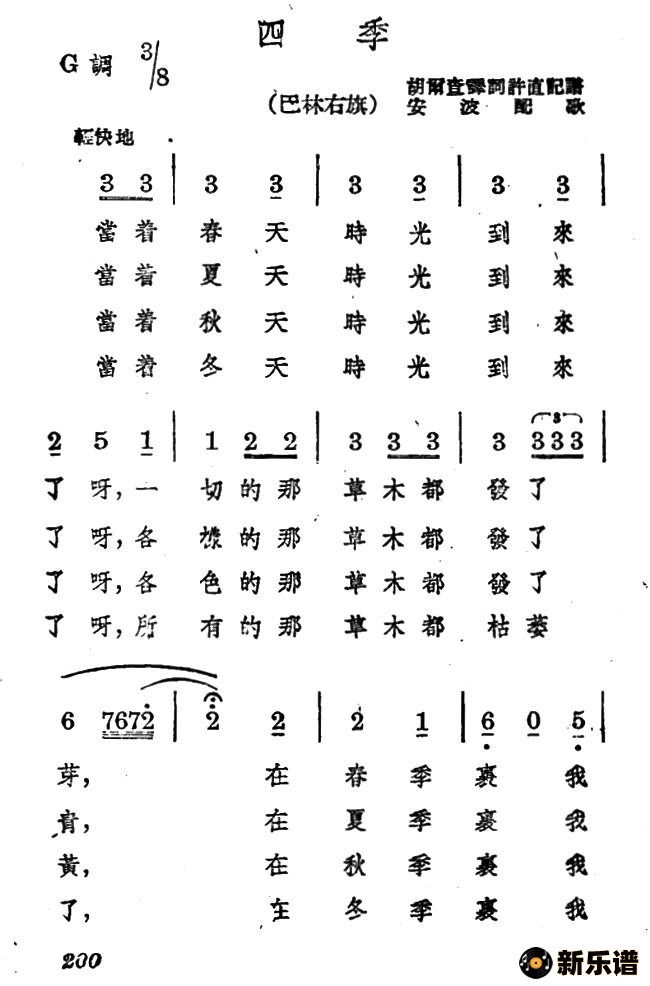 四 季
G調 3/8
胡爾查譯詞許直記譜
(巴林右旗) 安波配歌
輕快地
3 3 | 3 3 | 3 3 | 3 3 |
當着 春天 時光 到來
當着 夏天 時光 到來
當着 秋天 時光 到來
當着 冬天 時光 到來
2 5 1 | 1 2 2 | 3 3 3 | 3 333 |
了呀,一 切的那 草木都 發了
了呀,各 樣的那 草木都 發了
了呀,各 色的那 草木都 發了
了呀,所 有的那 草木都 枯萎
6 7672 | 2 2 | 2 1 | 6 0 5 |
芽, 在 春季 裏 我
青, 在 夏季 裏 我
黃, 在 秋季 裏 我
了, 在 冬季 裏 我
200
新乐谱